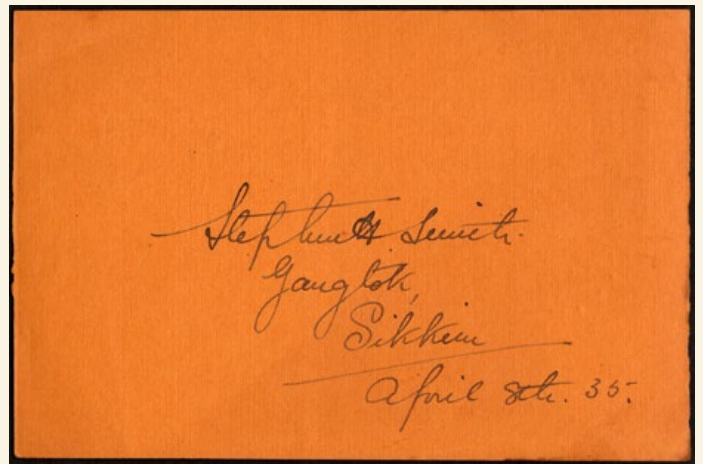 Stephen H Smith.
Gangtok,
Sikkim
April 8th. 35.